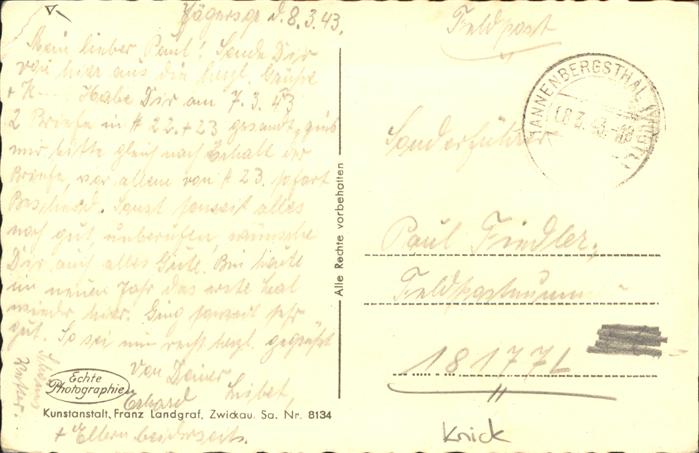 d. 8.3.43.
Mein lieber Paul! Sende Dir
von hier aus die herzl. Grüße
+ K--. Habe Dir am 7.3.43
2 Briefe in # 22.+23 gesandt, gib
mir bitte gleich nach Erhalt der
Briefe, vor allem von # 23. sofort
Bescheid. Sonst soweit alles
noch gut, unberufen, wünsche
Dir auch alles Gute. Bin heute
im neuen Jahr das erste Mal
wieder hier. Ging soweit sehr
gut. So sei nun recht herzl. gegrüßt
von Deiner
Lisbet,
+ Eltern beiderseits.
Echte
Photographie
Kunstanstalt, Franz Landgraf, Zwickau. Sa. Nr. 8134
Alle Rechte vorbehalten
Feldpost
TANNENBERGSTHAL (VOGTL)
08.3.43.-18
Sonderführer
Paul Fiedler,
Feldpostnumm
18177L
Knick